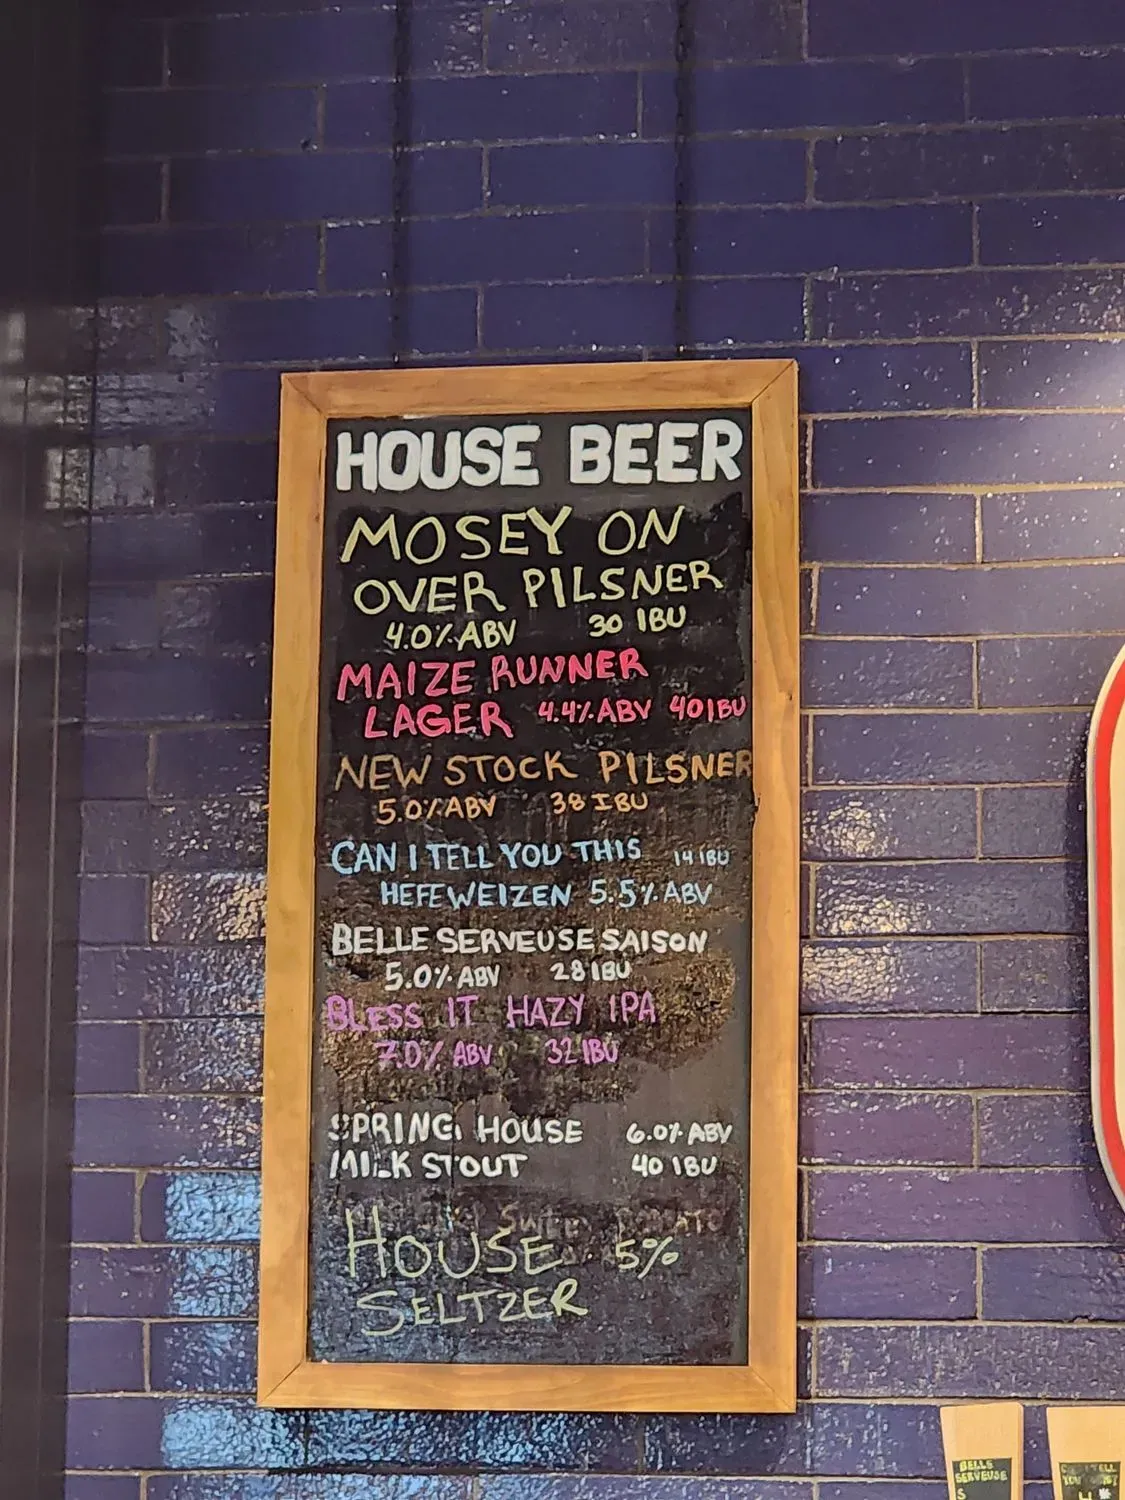 HOUSE BEER
MOSEY ON
OVER PILSNER
4.0% ABV 30 IBU
MAIZE RUNNER
LAGER 4.4% ABV 40 IBU
NEW STOCK PILSNER
5.0% ABV 38 IBU
CAN I TELL YOU THIS 14 IBU
HEFEWEIZEN 5.5% ABV
BELLE SERVEUSE SAISON
5.0% ABV 28 IBU
BLESS IT HAZY IPA
7.0% ABV 32 IBU
SPRING HOUSE 6.0% ABV
MILK STOUT 40 IBU
HOUSE 5%
SELTZER
BELLE
SERVEUSE